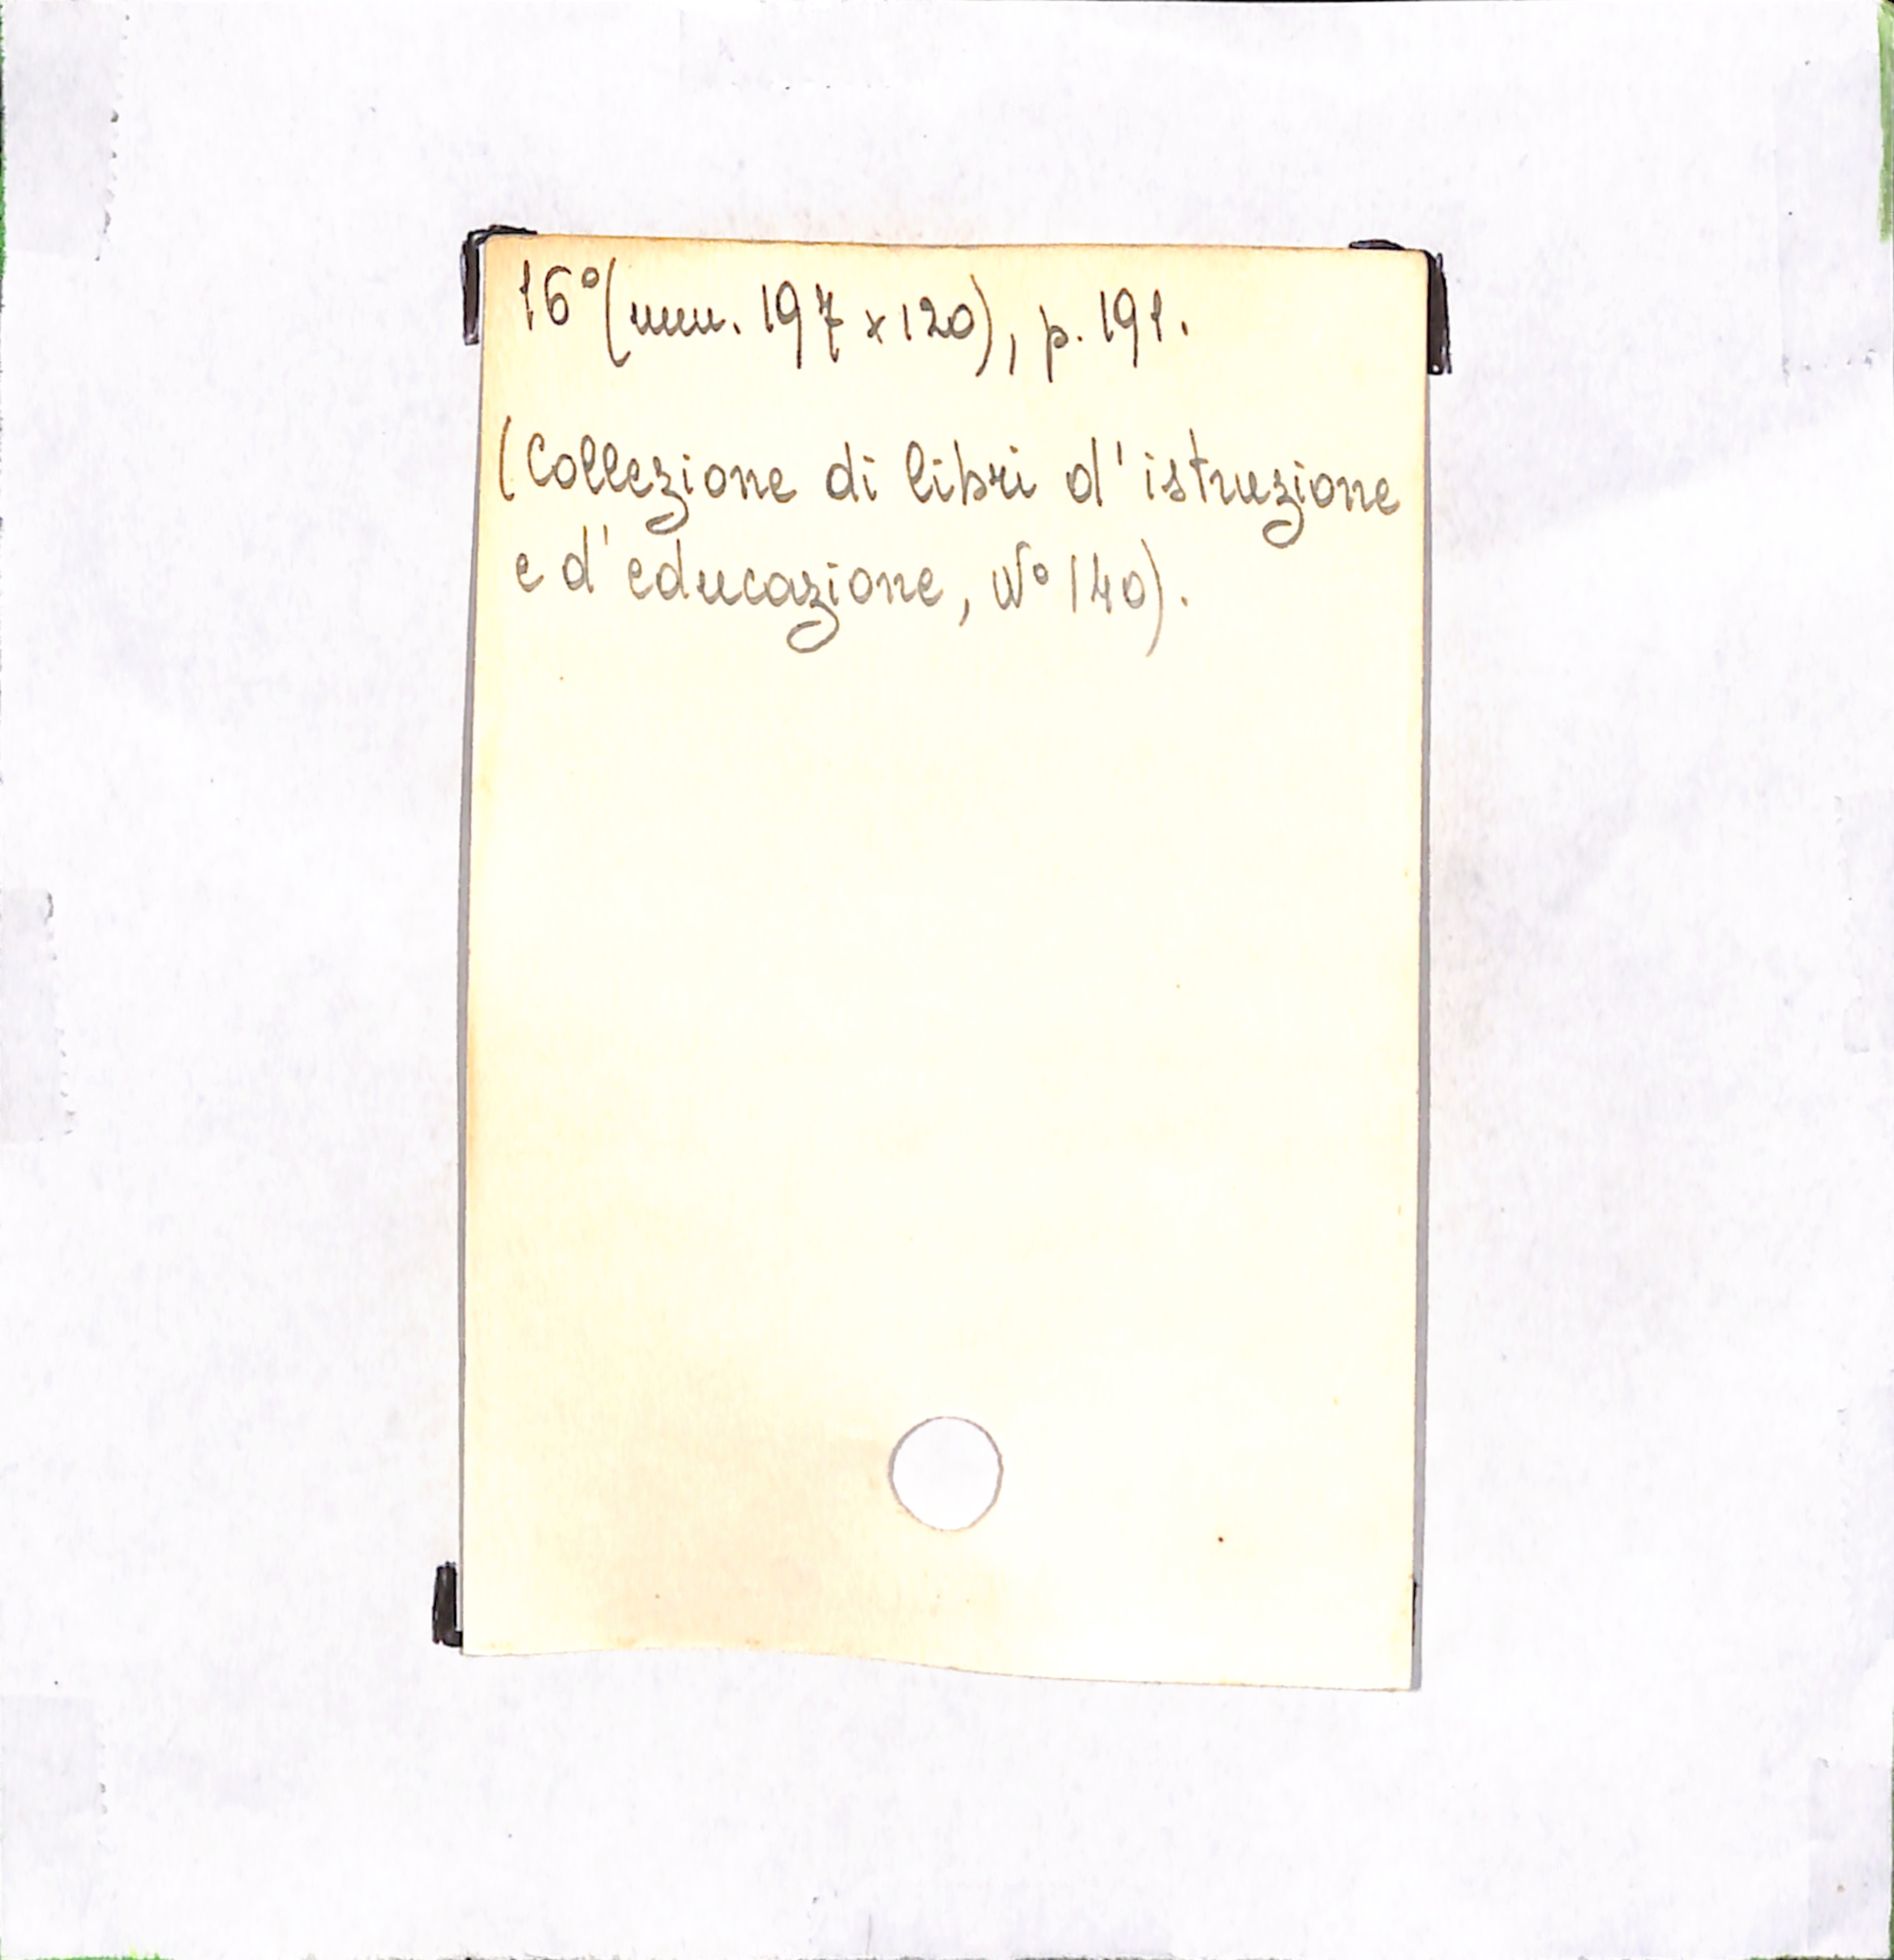 16°(mm. 197 x 120), p. 191.
(Collezione di libri d'istruzione
e d'educazione, N° 140).